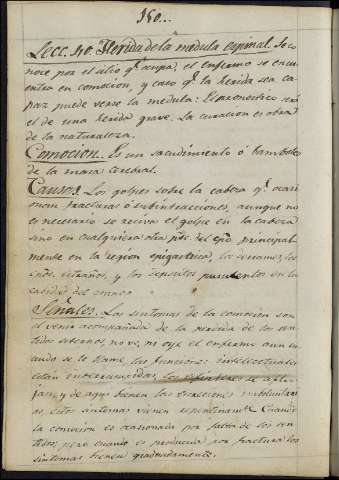 150..
Lecc. 40. Herida de la medula espinal. Se co
noce por el sitio q.e ocupa, el enfermo se encu
entra en comocion, y caso q.e la herida sea ca
paz puede verse la medula: El pronostico será
el de una herida grave. La curacion es obra
de la naturaleza.
Comocion. Es un sacudimiento ó bamboleo
de la masa cerebral.
Causas. Los golpes sobre la cabeza q.e ocasi
onen fracturas ó subintracciones, aunque no
es necesario se reciva el golpe en la cabeza
sino en cualquiera otra p.te del principal-
mente en la region epigastrica, las
estraños, y los depositos purulentos en la
cabidad del craneo.
Señales. Los sintomas de la comocion son
el acompañada de la perdida de los sen
tidos esternos, no ve, ni oye el enfermo aun cu
ando se le llame, las funciones intelectuales
están entorpecidas, los esfinteres se aflo
jan, y de aqui bienen las ecreciones involuntari
as, estos sintomas vienen repentinam.te Cuando
la comocion es ocasionada por
pero cuando es producida por fractura los
sintomas bienen gradualmente.